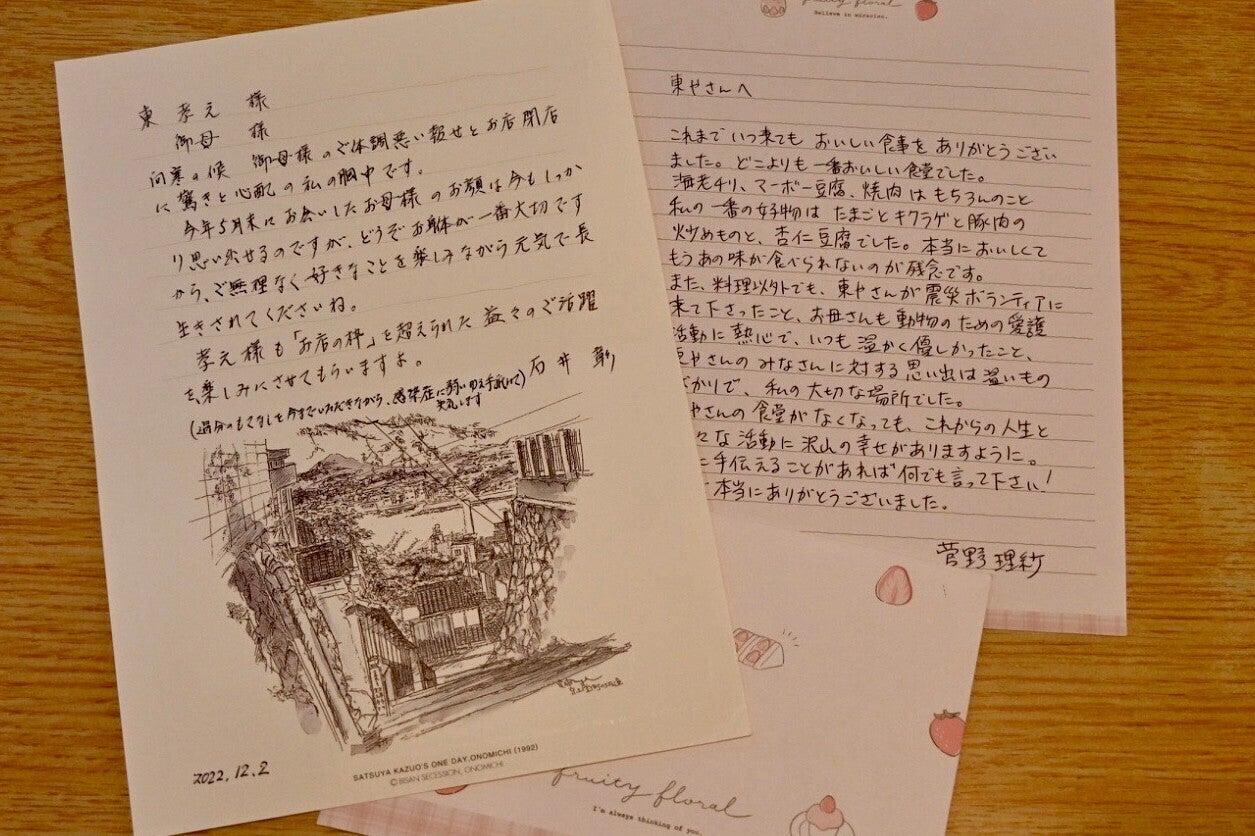 東 孝元 様
御母 様
向寒の候 御母様のご体調悪い報せとお店閉店
に驚きと心配の私の胸中です。
今年5月末にお会いしたお母様のお顔は今もしっか
り思い出せるのですが、どうぞお身体が一番大切です
から、ご無理なく好きなことを楽しみながら元気で長
生きされてくださいね。
孝元様も「お店の枠」を超えられた益々のご活躍
を、楽しみにさせてもらいますよ。
(過分のもてなしを今までいただきながら、感染症に 手紙にて)石井
失礼します
2022.12.2
SATSUYA KAZUO'S ONE DAY, ONOMICHI (1992)
© BISAN SECESSION, ONOMICHI
fruity floral
Believe in miracles.
東やさんへ
これまでいつ来ても おいしい食事を ありがとうござい
ました。どこよりも一番おいしい食堂でした。
海老チリ、マーボー豆腐、焼肉はもちろんのこと
私の一番の好物は たまごとキクラゲと豚肉の
炒めものと、杏仁豆腐でした。本当においしくて
もうあの味が食べられないのが残念です。
また、料理以外でも、東やさんが震災ボランティアに
来て下さったこと、お母さんも動物のための愛護
活動に熱心で、いつも温かく優しかったこと、
東やさんのみなさんに対する思い出は温いもの
かりで、私の大切な場所でした。
やさんの食堂がなくなっても、これからの人生と
々な活動に沢山の幸せがありますように。
に手伝えることがあれば何でも言って下さい!
本当にありがとうございました。
菅野理紗
fruity floral
I'm always thinking of you.